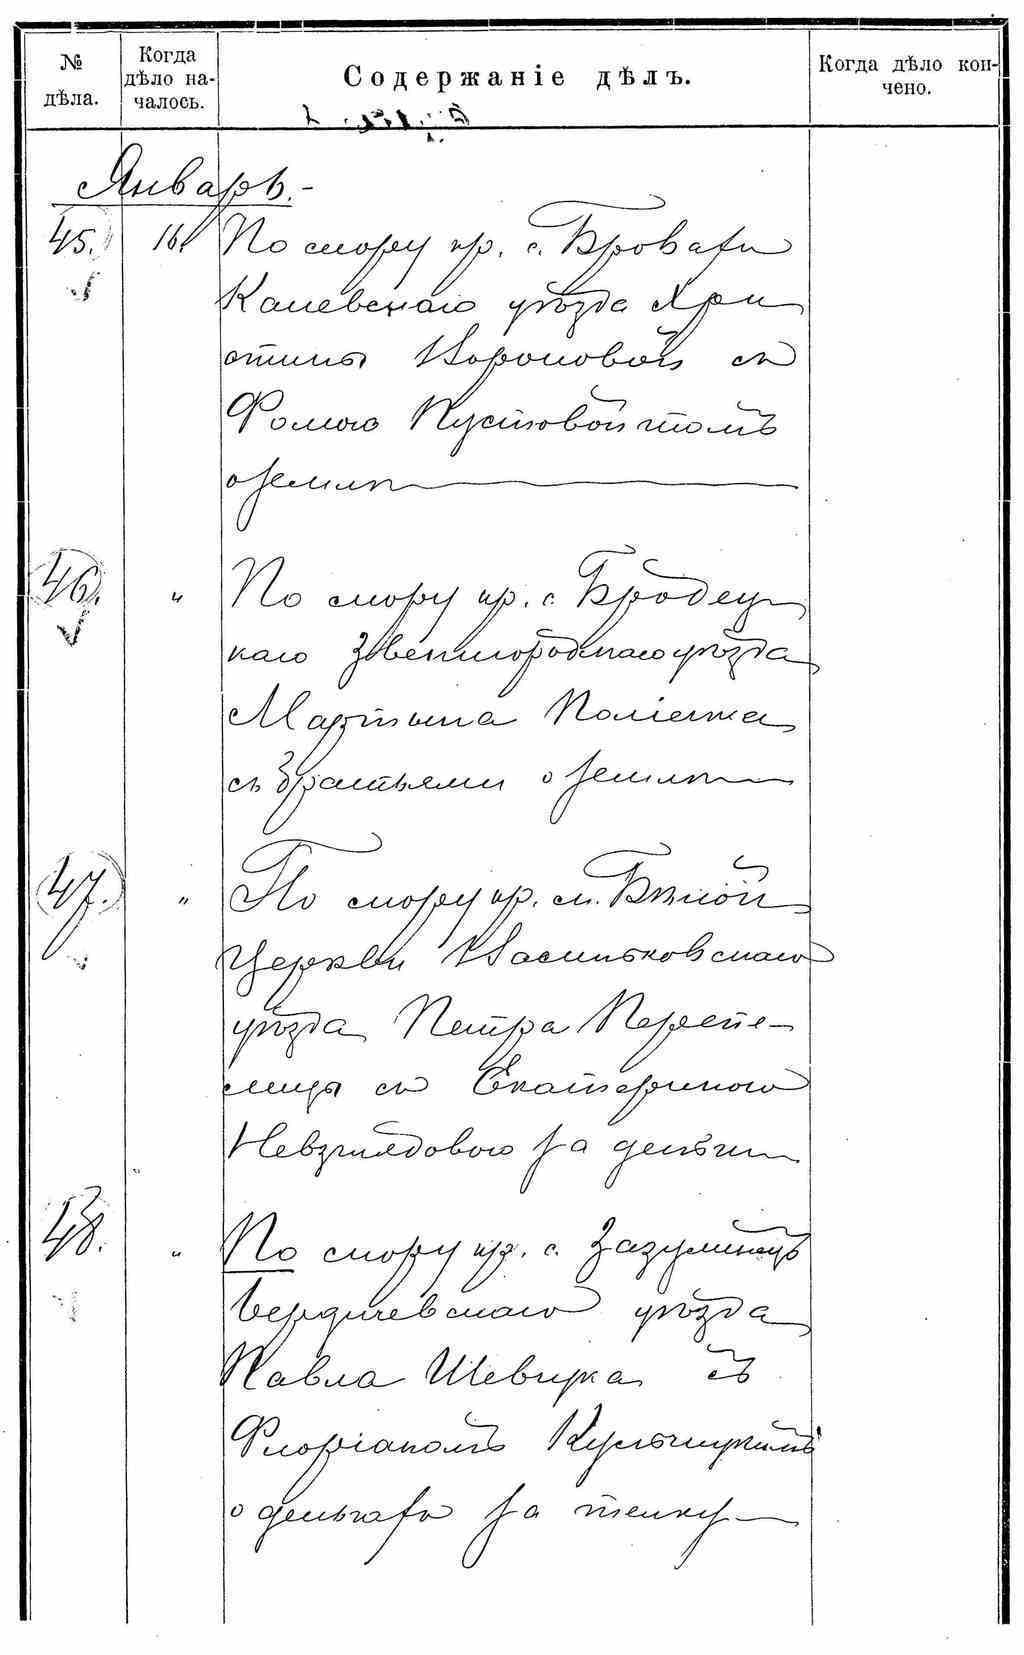 № дѣла.
Когда дѣло на-
чалось.
Содержаніе дѣлъ.
Когда дѣло кон-
чено.
Январь.
45. 16. По спору кр. с. Бровахи
Каневскаго уѣзда Хри
стины Вороновой съ
Фомою Пустовойтомъ
о землѣ
46. " По спору кр. с. Бродец
каго Звенигородскаго уѣзда
Мартына
съ братьями о землѣ
47. " По спору кр. м. Бѣлой
Церкви Васильковскаго
уѣзда Петра Перепе-
лицы съ Екатериною
Невзглядовою за деньги
48. " По спору кр. с. Зазулинецъ
Бердичевскаго уѣзда
Павла Шевчука съ
Флоріаномъ Кульчицкимъ
о деньгахъ за телку